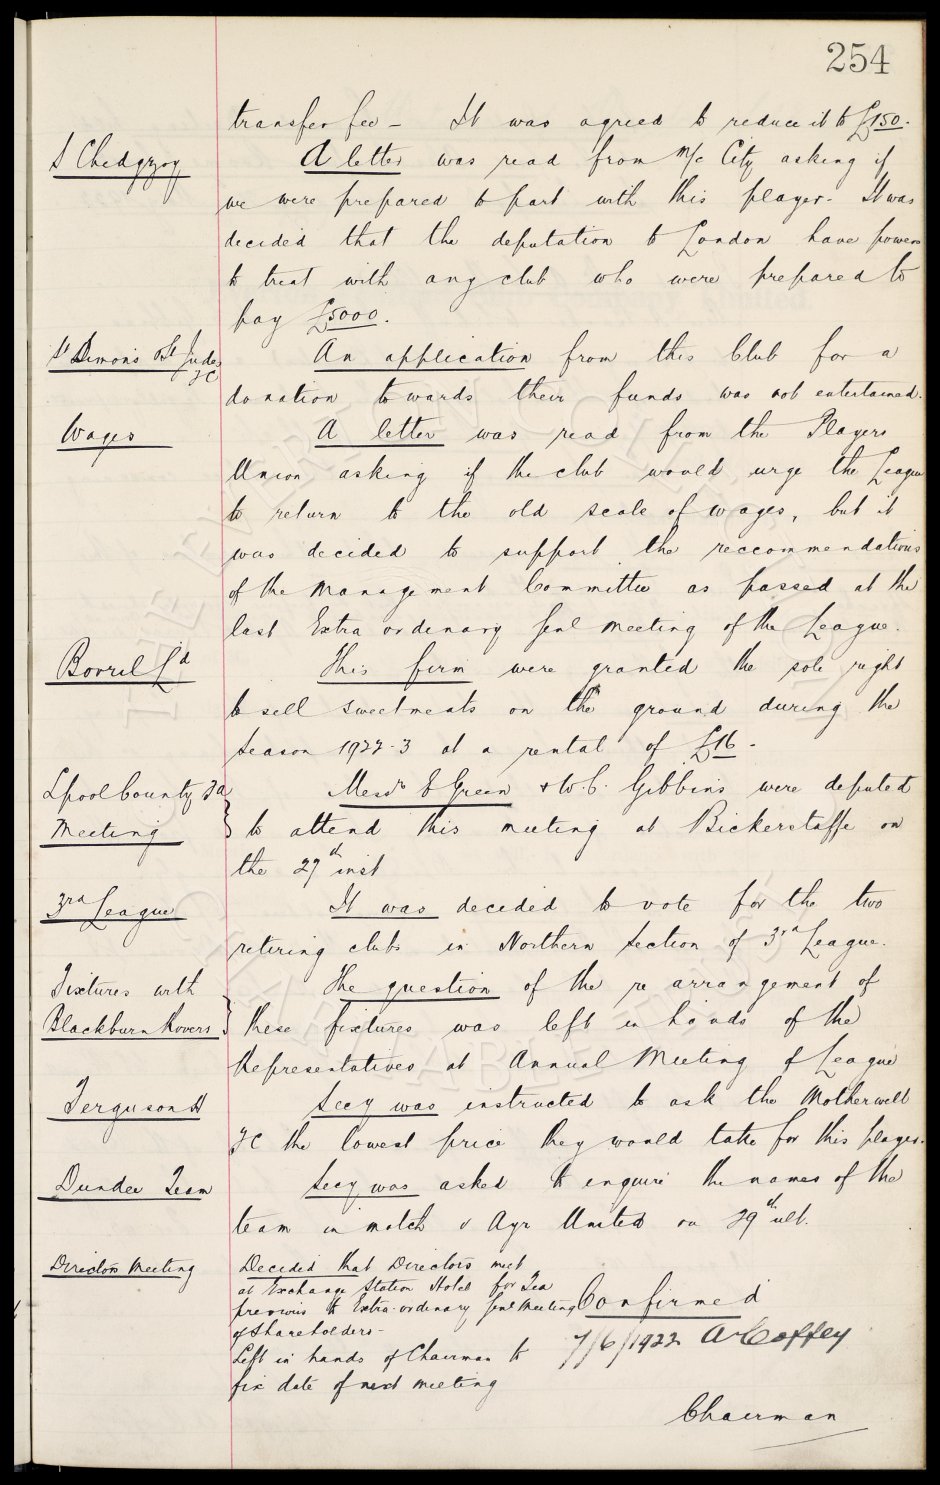 254
transfer fee - It was agreed to reduce it to £150.
S Chedgzoy
A letter was read from M/c City asking if
we were prepared to part with this player. It was
decided that the deputation to London have powers
to treat with any club who were prepared to
pay £5000.
St Simons & St Judes
FC
An application from this Club for a
donation towards their funds was not entertained.
Wages
A letter was read from the Players
Union asking if the club would urge the League
to return to the old scale of wages, but it
was decided to support the reccommendations
of the Management Committee as passed at the
last Extra ordinary Genl Meeting of the League.
Bovril Ld
This firm were granted the sole right
to sell sweetmeats on the ground during the
Season 1922-3 at a rental of £16 -
Lpool County Fa
Meeting
Messrs E Green & W.C. Gibbins were deputed
to attend this meeting at Bickerstaffe on
the 27th inst
3rd League
It was decided to vote for the two
retiring clubs in Northern Section of 3rd League.
Fixtures with
Blackburn Rovers
The question of the re arrangement of
these fixtures was left in hands of the
Representatives at Annual Meeting of League
Ferguson H
Secy was instructed to ask the Motherwell
FC the lowest price they would take for this player.
Dundee Team
Secy was asked to enquire the names of the
team in match v Ayr United on 29th ult.
Directors Meeting
Decided that Directors meet
at Exchange Station Hotel for Tea
previous to Extra-ordinary Genl Meeting
of Shareholders -
Left in hands of Chairman to
fix date of next meeting
Confirmed
7/6/1922 A Coffey
Chairman